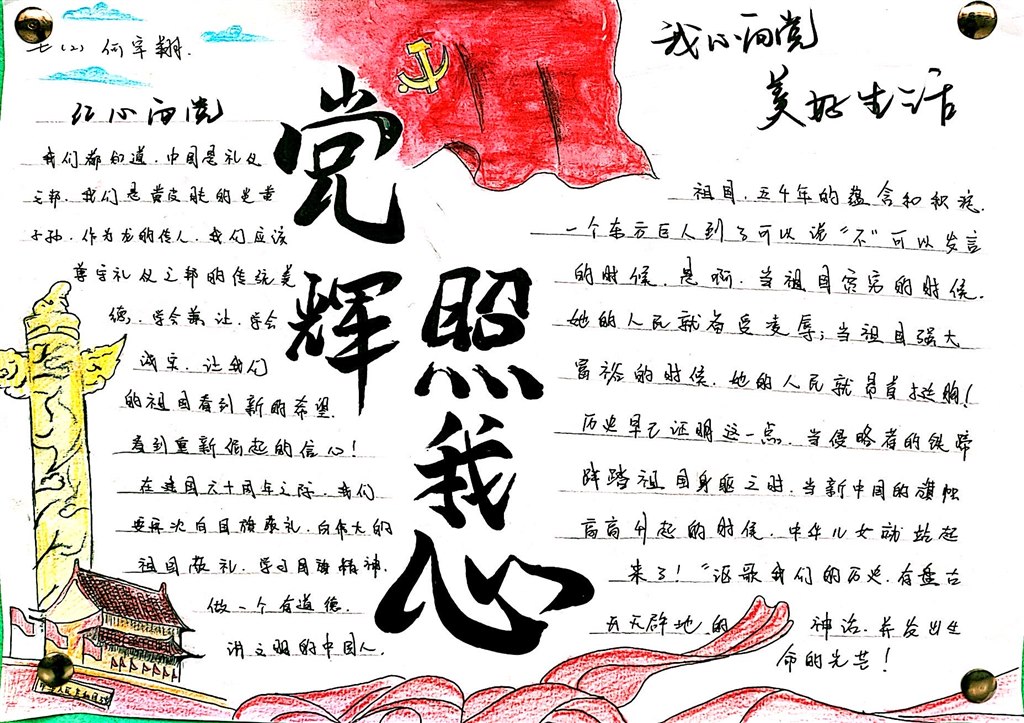 七(2) 何宇翔.
红心向党
我们都知道，中国是礼仪
之邦，我们是黄皮肤的炎黄
子孙，作为龙的传人，我们应该
尊守礼仪之邦的传统美
德，学会谦让，学会
诚实，让我们
的祖国看到新的希望，
看到重新倔起的信心！
在建国六十周年之际，我们
要再次向国旗敬礼，向伟大的
祖国敬礼，学习国旗精神，
做一个有道德，
讲文明的中国人．
党
辉
照
我
心
我心向党
美好生活
祖国，五千年的蕴含和积淀，
一个东方巨人到了可以说“不”可以发言
的时候，是啊，当祖国贫穷的时候，
她的人民就备受凌辱；当祖国强大
富裕的时候，她的人民就昂首挺胸！
历史早已证明这一点，当侵略者的铁蹄
阵踏祖国身躯之时，当新中国的旗帜
高高升起的时候，中华儿女动站起
来了！“讴歌我们的历史，有盘古
开天辟地的 神话，并发出生
命的光芒！